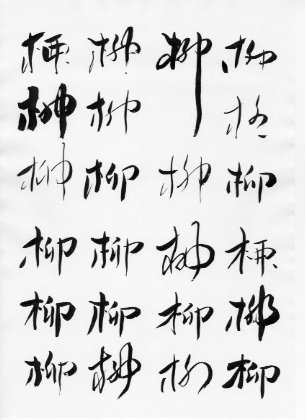 柳柳柳柳
柳柳柳
柳柳柳柳
柳柳柳柳
柳柳柳柳
柳柳柳柳